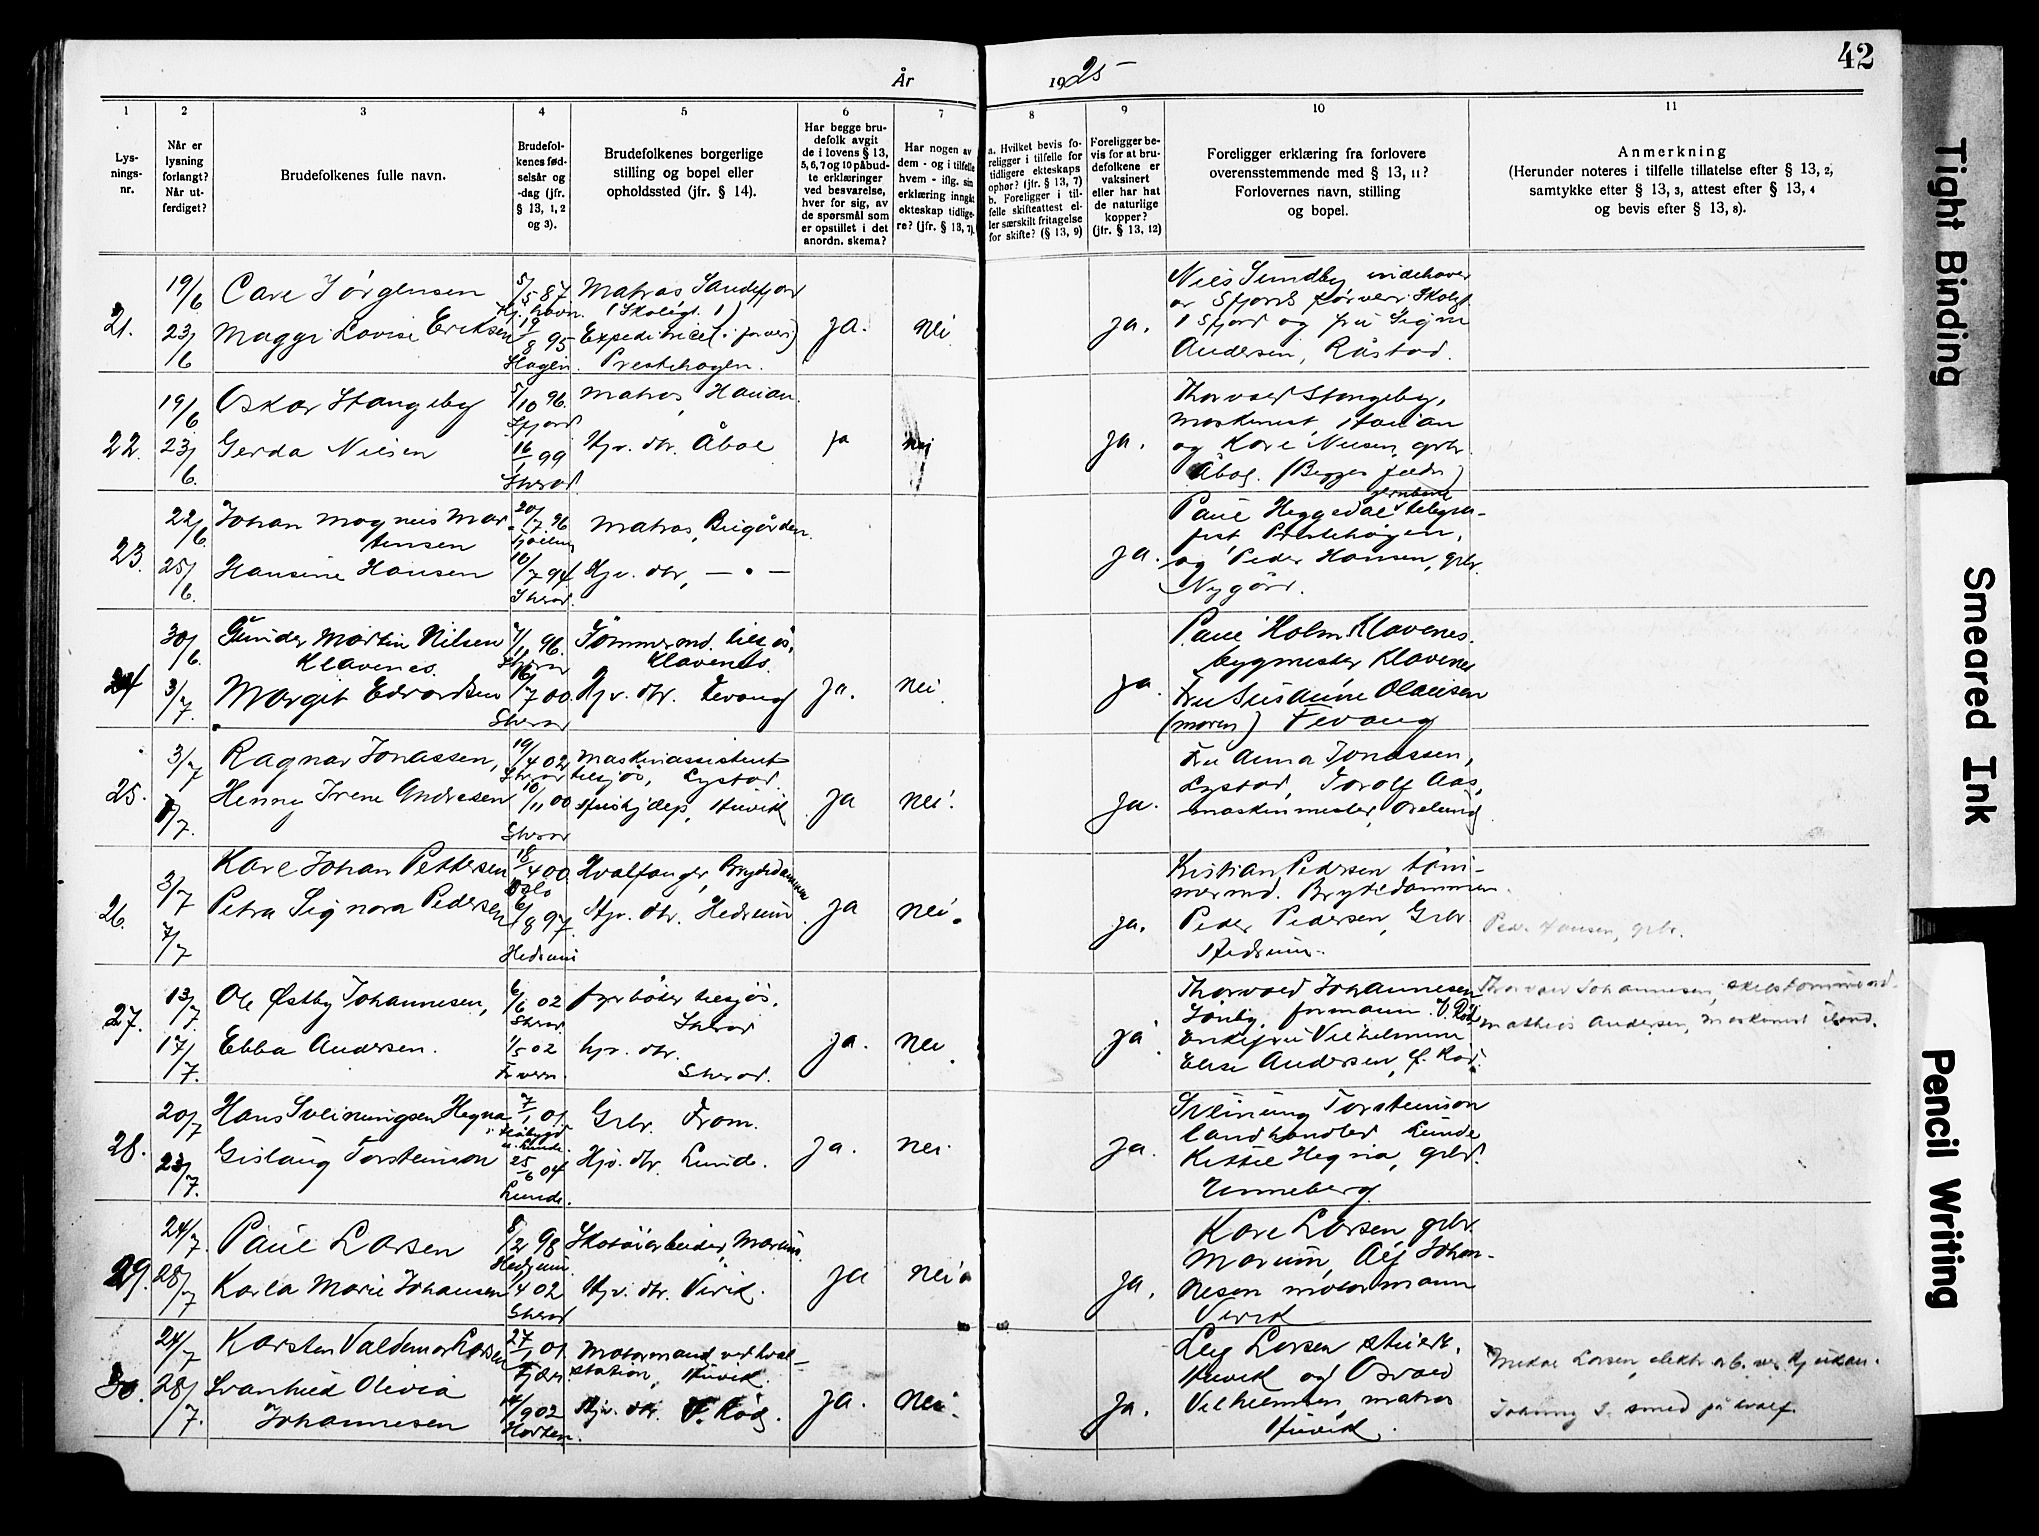 42
År 1925
1 2 3 4 5 6 7 8 9 10 11
Lys-
nings-
nr.
Når er
lysning
forlangt?
Når ut-
ferdiget?
Brudefolkenes fulle navn.
Brudefol-
kenes fød-
selsår og
-dag (jfr.
§ 13, 1, 2
og 3).
Brudefolkenes borgerlige
stilling og bopel eller
opholdssted (jfr. § 14).
Har begge bru-
defolk avgit
de i lovens § 13,
5, 6, 7 og 10 påbud-
te erklæringer
ved besvarelse,
hver for sig, av
de spørsmål som
er opstillet i det
anordn. skema?
Har nogen av
dem - og i tilfelle
hvem - iflg. sin
erklæring inngåt
ekteskap tidlige-
re? (jfr. § 13, 7).
a. Hvilket bevis fo-
religger i tilfelle for
tidligere ekteskaps
ophør? (jfr. § 13, 7)
b. Foreligger i til-
felle skifteattest el-
ler særskilt fritagelse
for skifte? (§ 13, 9)
Foreligger be-
vis for at bru-
defolkene er
vaksinert
eller har hat
de naturlige
kopper?
(jfr. § 13, 12)
Foreligger erklæring fra forlovere
overensstemmende med § 13, 11?
Forlovernes navn, stilling
og bopel.
Anmerkning
(Herunder noteres i tilfelle tillatelse efter § 13, 2,
samtykke efter § 13, 3, attest efter § 13, 4
og bevis efter § 13, 8).
21.
19/6
23/6
Carl Jørgensen
Maggi Lovise Eriksen
5/5 87
Kj. havn.
19/8 95
Hagen.
Matros Sandefjord
Prestehagen.
ja.
nei
ja.
Niels Sundby indehaver
1 Sfjord og fru Signe
Andersen, Råstad.
22.
19/6
23/6.
Oskar Stangeby
Gerda Nilsen
5/10 96.
Sfjord
16/1 99
Sherad.
Matros, Hauan.
Hjv. dtr. Åbol
ja
nei
ja.
Thorvald Stangeby,
maskinist, Hauan
og Karl Nilsen, grbr.
Åbol. (Begges fædre)
23.
22/6.
25/6
Johan Magnus Mar-
tensen
Hansine Hansen
20/7 96
10/7 94
Sherad.
Matros, Bugården
Hjv. dtr, — " —
ja.
Paul Heggedal, jernbane telegra-
fist Prestehagen,
og Peder Hansen, grbr.
Nygård.
24
30/6.
3/7.
Gunder Martin Nilsen
Klavenes.
Margit Edvardsen
96.
Sherad
16/7 00.
Sherad
Tømmermd. tilsjøs,
Klavenes.
Hjv. dtr. Fevang
ja.
nei.
ja.
Paul Holm Klavenes.
bygmester Klavenes
Fru Susanne Olausen
(moren) Fevang
25.
3/7
7/7.
Ragnar Jonassen,
Henny Irene Andresen
19/4 02
Sherad
10/11 00
Sherad
Maskinassistent
tilsjøs, Lystad.
Hushjælp, Huvik
ja
nei.
ja.
Fru Anna Jonassen,
Lystad, Torolf Aas,
maskinmester, Orelund
26.
3/7
7/7
Karl Johan Pettersen
Petra Signora Pedersen
18/4 00.
Oslo
6/8 97.
Hedrum
Hvalfanger, Brydedammen
Hjv. dtr. Hedrum
ja
nei.
ja.
Kristian Pedersen tøm-
mermd. Brydedammen.
Peder Pedersen, Grbr.
Hedrum.
Peder Hansen, grbr.
27.
13/7
17/7.
Ole Østby Johannesen,
Ebba Andersen.
6/6 02
Sherad
1/5 02
Tjverv.
fyrbøter tilsjøs.
Sherad
hjv. dtr.
Sherad.
ja.
nei.
ja.
Thorvald Johannesen
formann V. Rød
Enkefru Vilhelmine
Elise Andersen, Ø. Rød.
Thorvald Johannesen, skibstømmermd.
Mathias Andersen, Maskinist
28.
20/7
23/7.
Hans Sveinungsen Hegna
Gislaug Torsteinson
7/1 01.
i Flåbygd
Lunde.
25/6 04
Lunde.
Grbr. From.
Hjv. dtr. Lunde.
ja.
nei.
ja.
Sveinung Torsteinson
landhandler Lunde
Kittil Hegna, grbr.
Unneberg.
29.
24/7.
28/7
Paul Larsen
Karla Marie Johansen
8/2 98
Hedrum.
1/4 02
Sherad
Skotøiarbeider, Marum.
Hjv. dtr. Virik.
ja
nei
ja.
Karl Larsen grbr.
Marum, Alf Johan-
nesen motormann
Virik
30.
24/7
28/7.
Karsten Valdemar Larsen
Svanhild Olivia
Johannesen
27/1 01.
Tjøm
9 02
Horten.
Motormand ved hval-
station, Huvik.
Hjv. dtr. V. Rød.
ja.
nei.
ja.
Leif Larsen
Huvik og Osvald
Vilhelmsen, matros
Huvik.
Mikal Larsen, elektr. arb. ved Rjukan.
Johnny J. smed på hvalf.
Tight Binding
Smeared Ink
Pencil Writing